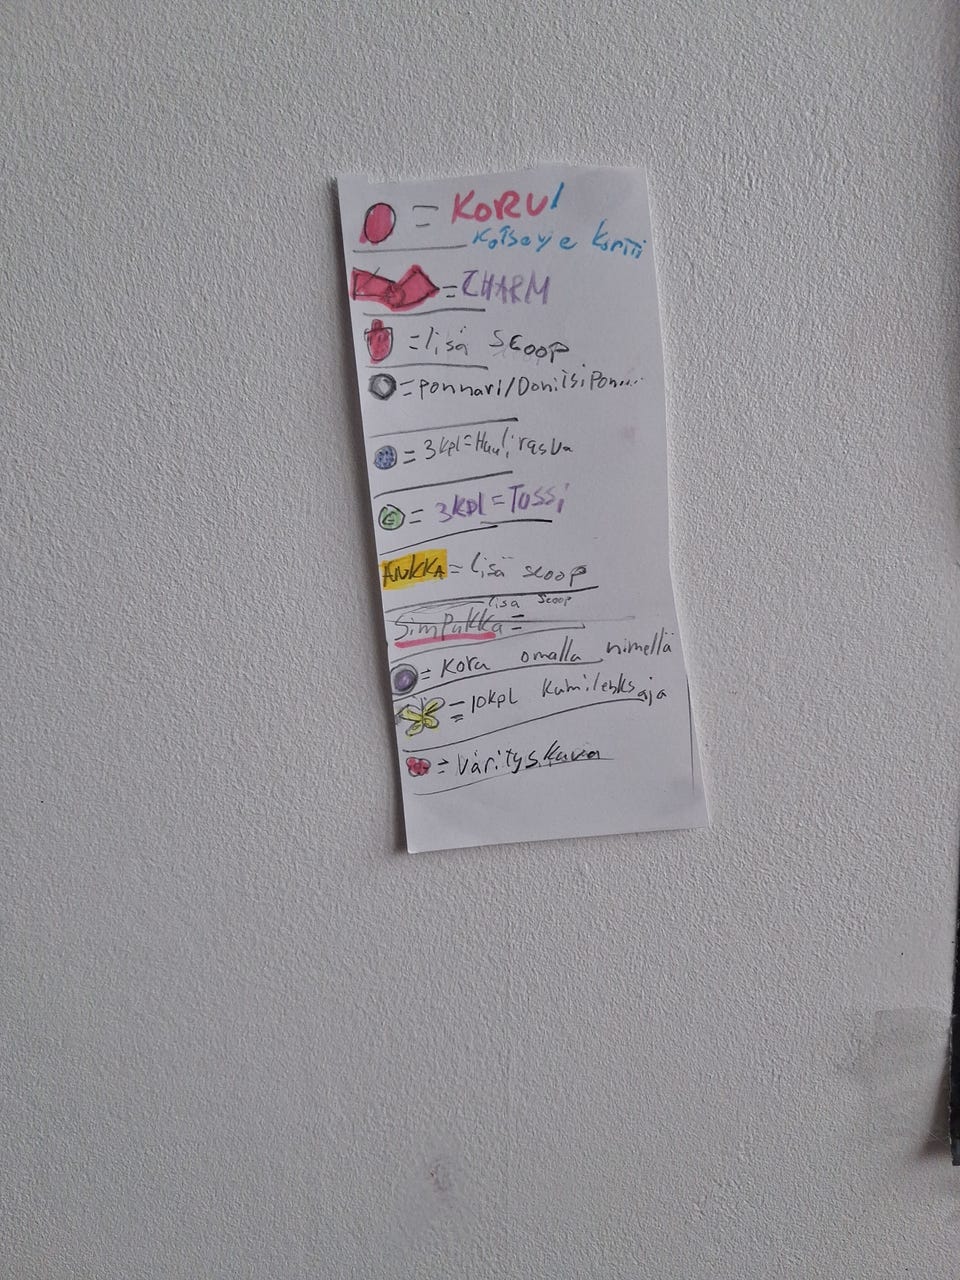 = KORU/
Katseye kortti
= CHARM
= lisä scoop
= ponnari/Donitsipon...
= 3kpl = Huulirasva
G = 3kpl = Tussi
ANKKA = lisä scoop
lisä scoop
Simpukka =
= Koru omalla nimellä
= 10kpl Kumilenksaja
= Värityskuva